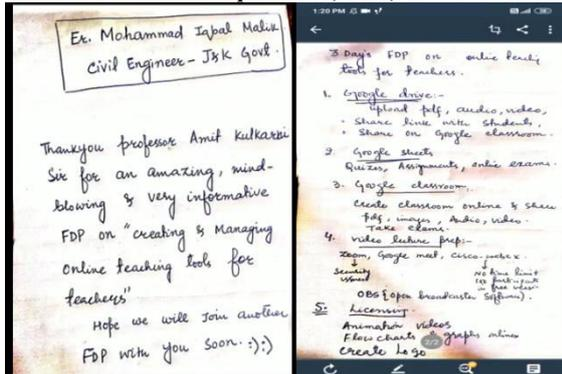 Er. Mohammad Iqbal Malik
Civil Engineer - J&K Govt.
Thankyou professor Amit Kulkarni
Sir for an amazing, mind-
blowing & very informative
FDP on "creating & Managing
Online teaching tools for
teachers"
Hope we will Join another
FDP with you Soon. :):)
1:20 PM
3 Day's FDP on online teaching
tools for teachers.
1. Google drive:-
upload pdf, audio, video,
• Share link with Students,
• Share on Google classroom.
2. Google sheets
Quizes, Assignments, online exams.
3. Google classroom.
Create classroom online & share
pdf, images, Audio, video.
Take exams.
4. video lecture prep:-
Zoom, Google meet, Cisco-webex.
Security
issues
No time limit
100 participants
in free version
OBS (open broadcaster Software).
5. Licensing
Animation videos
Flow charts & graphs online
2/2
Create Logo